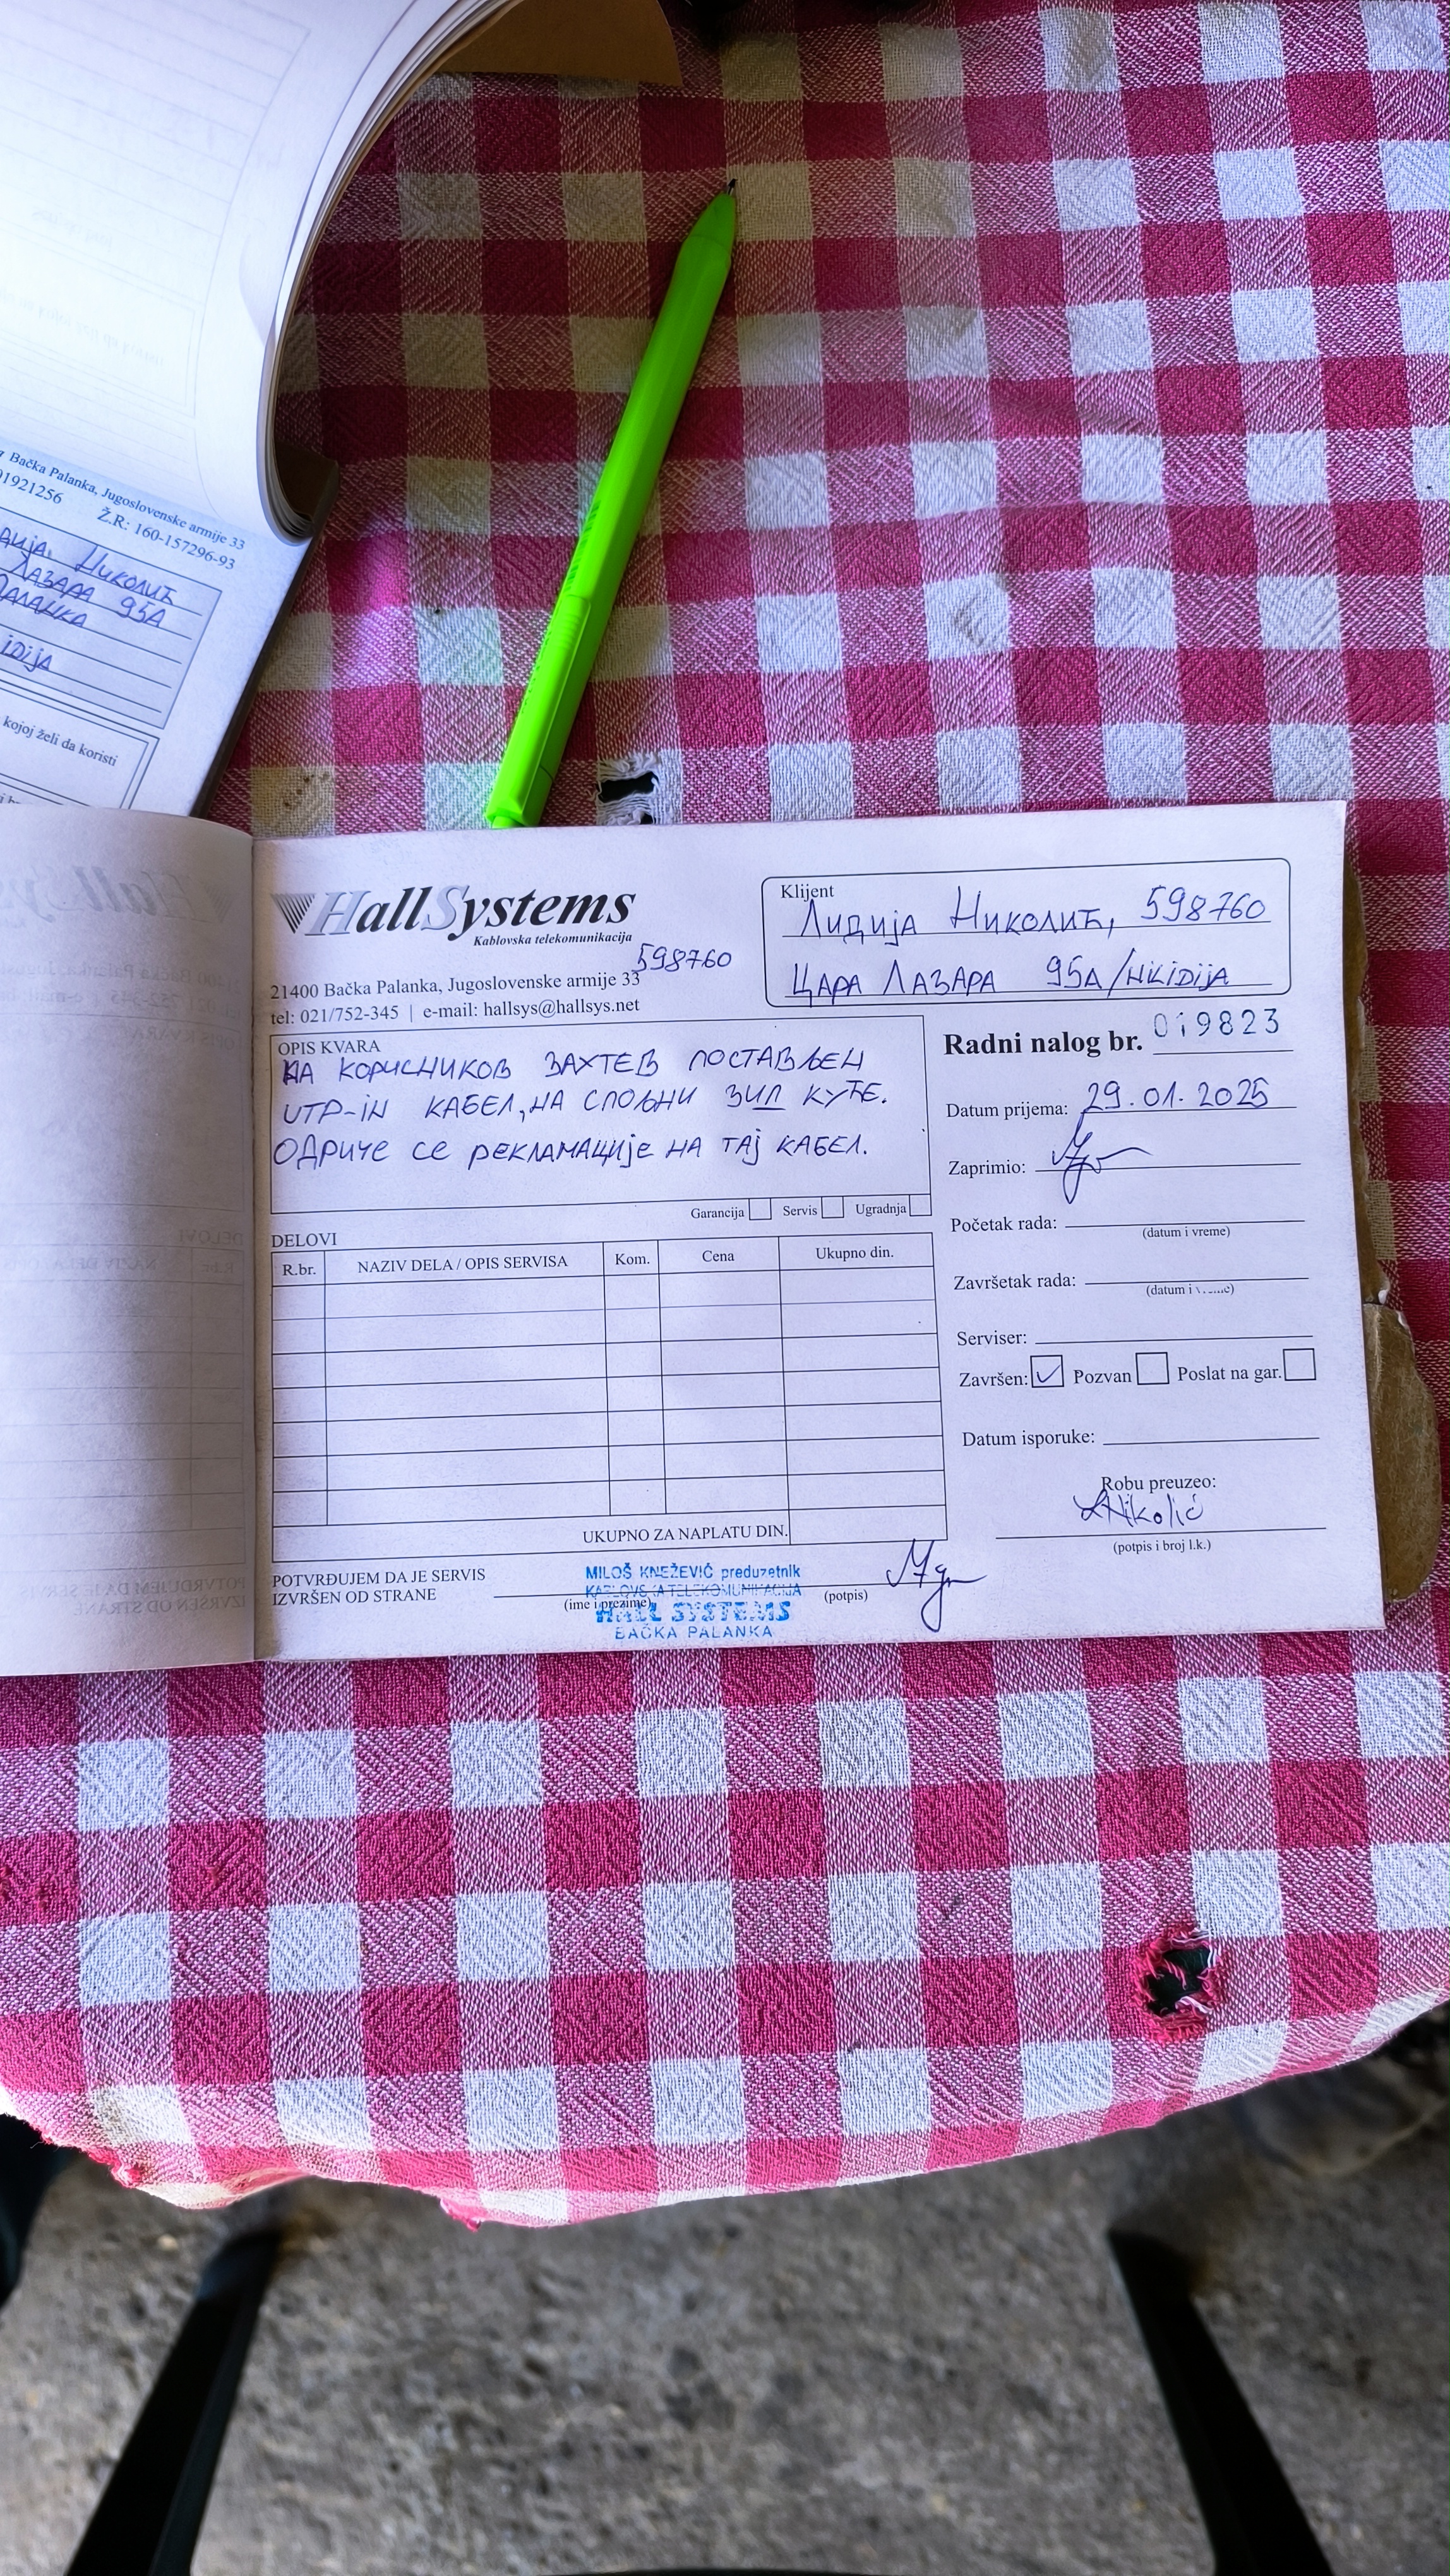 Bačka Palanka, Jugoslovenske armije 33
01921256 Ž.R: 160-157296-93
Николић
Лазара 95А
Паланка
kojoj želi da koristi
HallSystems
Kablovska telekomunikacija
598760
21400 Bačka Palanka, Jugoslovenske armije 33
tel: 021/752-345 | e-mail: hallsys@hallsys.net
Klijent
Лидија Николић, 598760
ЦАРА ЛАЗАРА 95А/NKIDIJA
OPIS KVARA
НА КОРИСНИКОВ ЗАХТЕВ ПОСТАВЉЕН
UTP-IN КАБЕЛ, НА СПОЉНИ ЗИД КУЋЕ.
ОДРИЧЕ СЕ РЕКЛАМАЦИЈЕ НА ТАЈ КАБЕЛ.
Garancija Servis Ugradnja
Radni nalog br. 019823
Datum prijema: 29.01.2025
Zaprimio:
Početak rada:
(datum i vreme)
Završetak rada:
(datum i vreme)
Serviser:
Završen: ✓ Pozvan Poslat na gar.
Datum isporuke:
Robu preuzeo:
LNikolić
(potpis i broj l.k.)
DELOVI
R.br. NAZIV DELA / OPIS SERVISA Kom. Cena Ukupno din.
UKUPNO ZA NAPLATU DIN.
POTVRĐUJEM DA JE SERVIS
IZVRŠEN OD STRANE
(ime i prezime)
(potpis)
MILOŠ KNEŽEVIĆ preduzetnik
KABLOVSKA TELEKOMUNIKACIJA
HALL SYSTEMS
BAČKA PALANKA